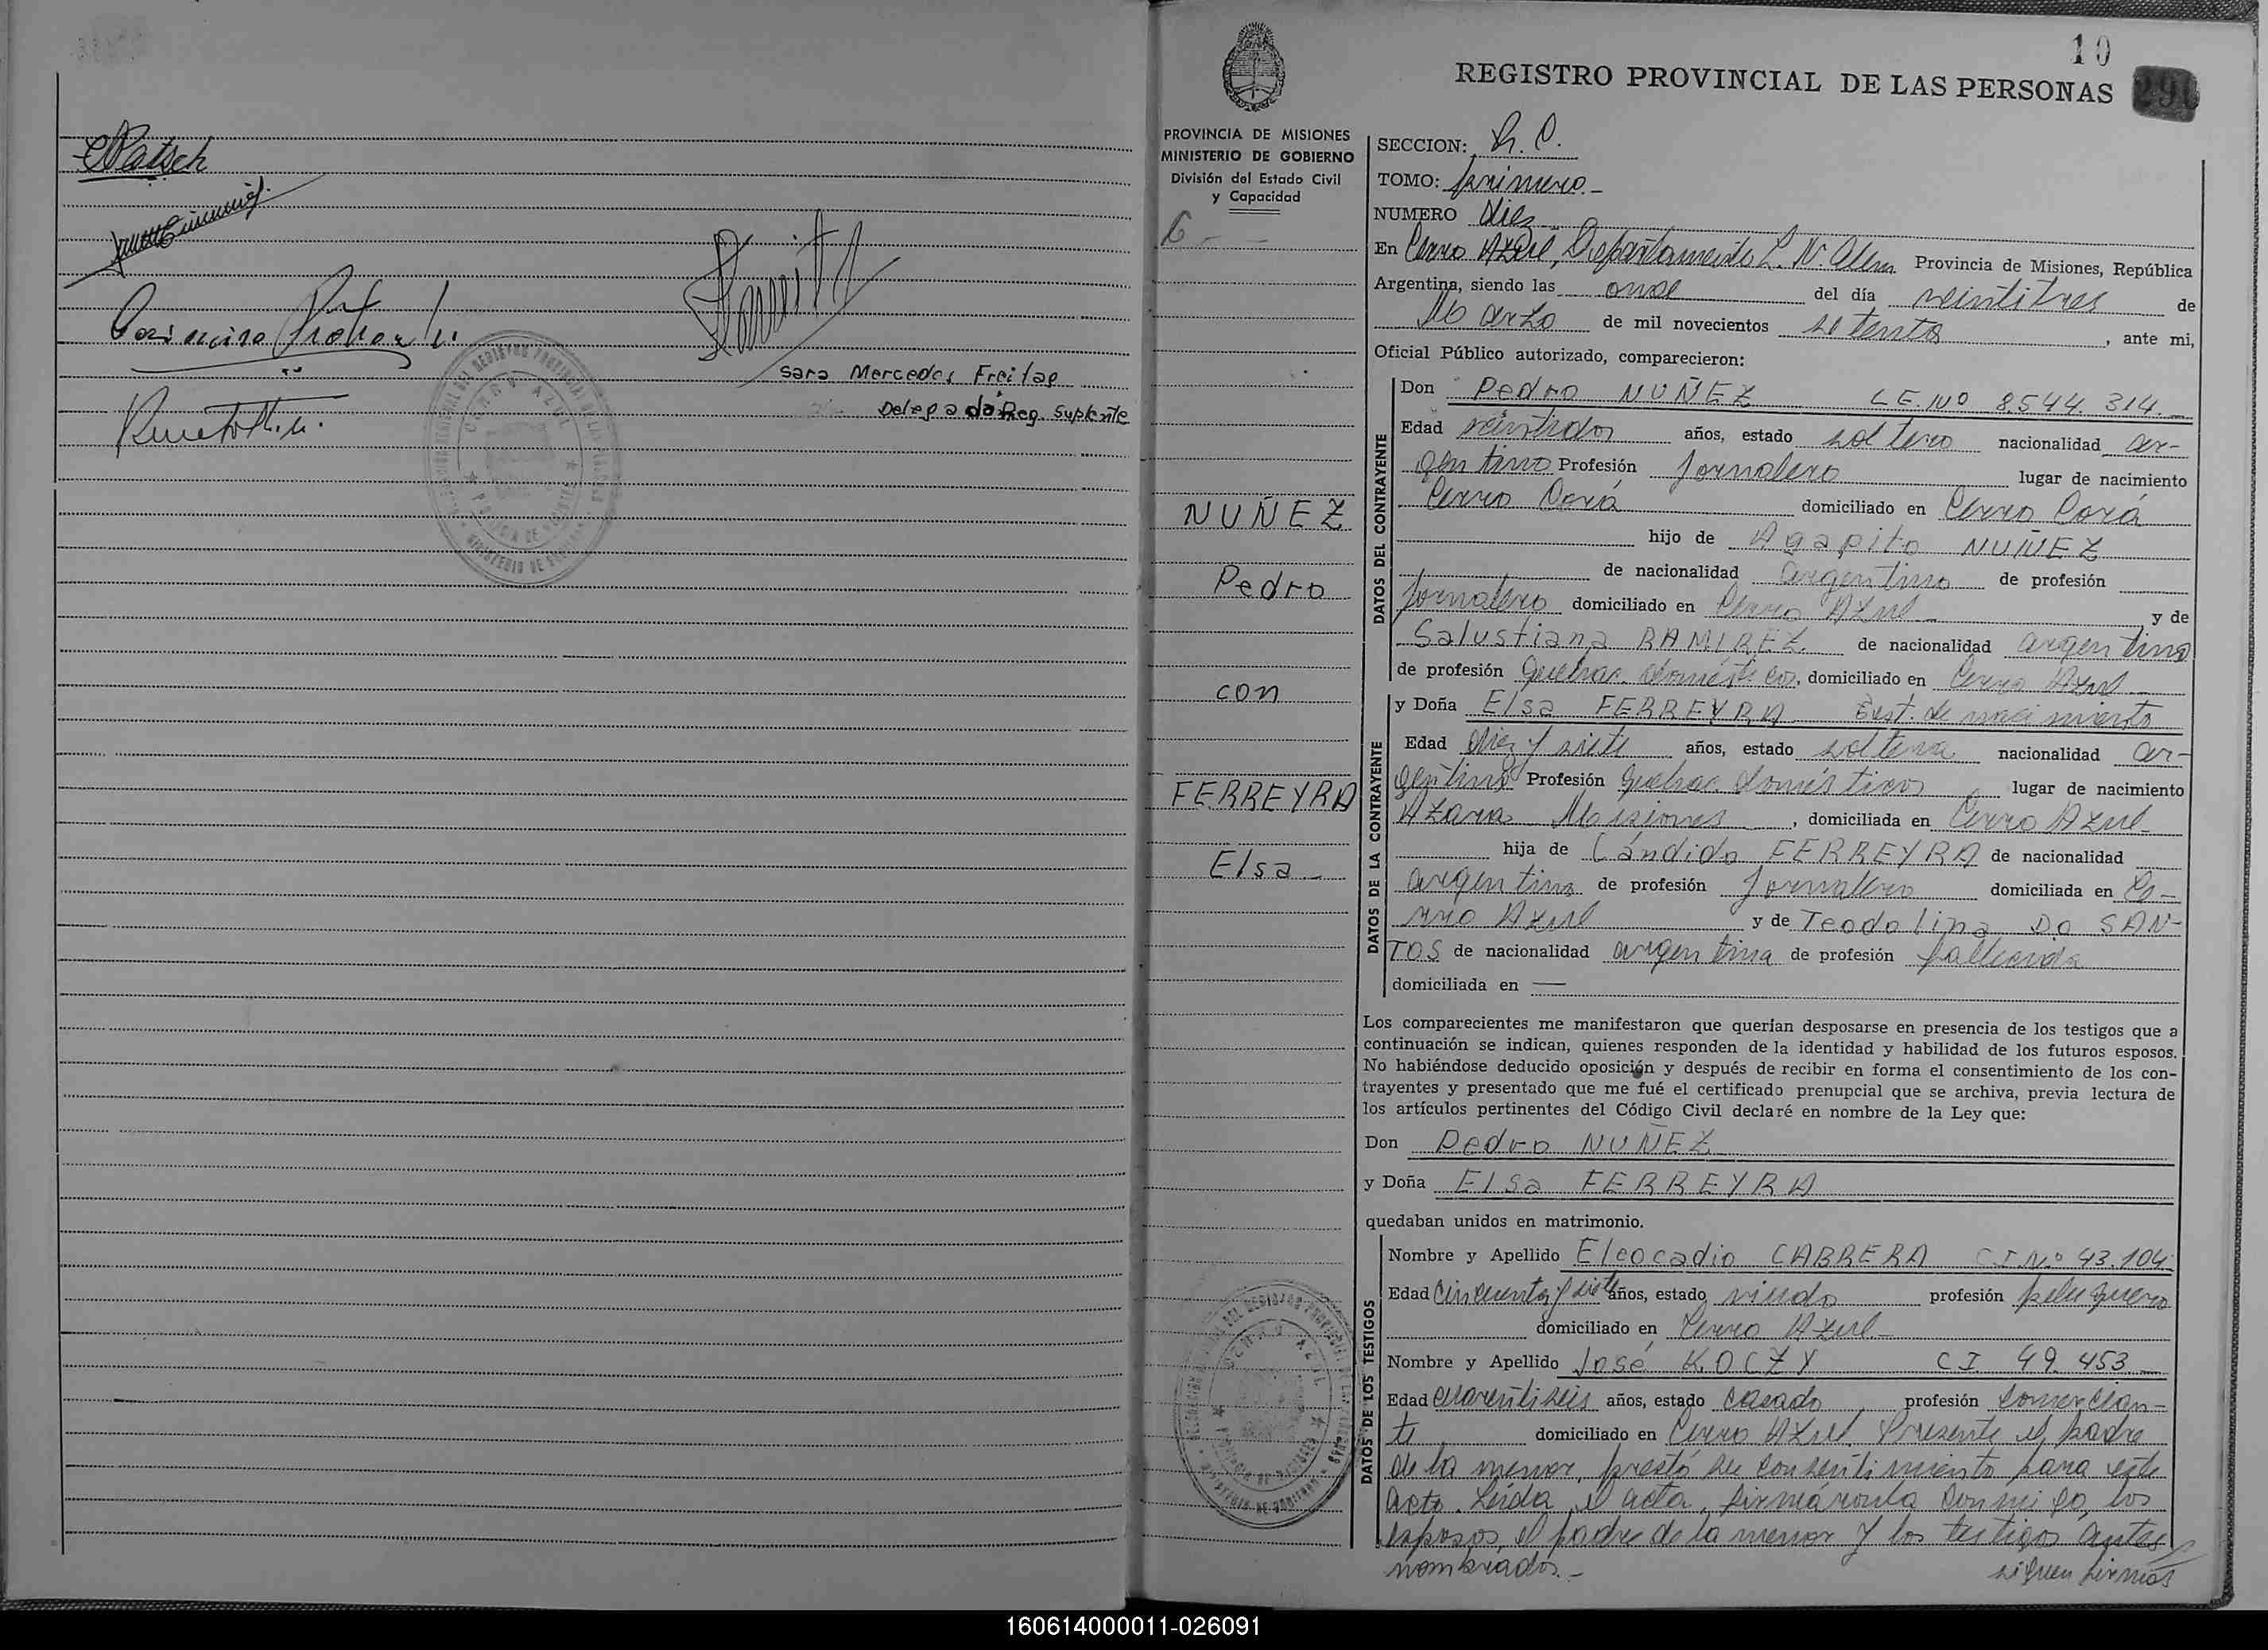 Sara Mercedes Freitag
Delegada Reg. Suplente
10
REGISTRO PROVINCIAL DE LAS PERSONAS
PROVINCIA DE MISIONES
MINISTERIO DE GOBIERNO
División del Estado Civil
y Capacidad
NUÑEZ
Pedro
con
FERREYRA
Elsa
SECCION:
TOMO: primero.-
NUMERO diez
En Cerro Azul, Departamento L. N. Alem Provincia de Misiones, República
Argentina, siendo las once del día veintitres de
Marzo de mil novecientos setenta, ante mi,
Oficial Público autorizado, comparecieron:
DATOS DEL CONTRAYENTE
Don Pedro NUÑEZ L.E. Nº 8544.314.
Edad veintidos años, estado soltero nacionalidad ar-
gentino Profesión Jornalero lugar de nacimiento
Cerro Corá domiciliado en Cerro Corá
hijo de Agapito NUÑEZ
de nacionalidad argentino de profesión
Jornalero domiciliado en Cerro Azul y de
Salustiana RAMIREZ de nacionalidad argentina
de profesión Quehac. domésticos, domiciliado en Cerro Azul
DATOS DE LA CONTRAYENTE
y Doña Elsa FERREYRA Cert. de nacimiento
Edad diez y siete años, estado soltera nacionalidad ar-
gentina Profesión quehac. domésticos lugar de nacimiento
Azara Misiones, domiciliada en Cerro Azul
hija de Cándido FERREYRA de nacionalidad
argentino de profesión Jornalero domiciliada en Ce-
rro Azul y de Teodolina Do SAN-
TOS de nacionalidad argentina de profesión fallecida
domiciliada en —
Los comparecientes me manifestaron que querían desposarse en presencia de los testigos que a
continuación se indican, quienes responden de la identidad y habilidad de los futuros esposos.
No habiéndose deducido oposición y después de recibir en forma el consentimiento de los con-
trayentes y presentado que me fué el certificado prenupcial que se archiva, previa lectura de
los artículos pertinentes del Código Civil declaré en nombre de la Ley que:
Don Pedro NUÑEZ
y Doña Elsa FERREYRA
quedaban unidos en matrimonio.
DATOS DE LOS TESTIGOS
Nombre y Apellido Eleocadio CABRERA C.I. Nº 43.104
Edad Cincuenta y siete años, estado viudo profesión peluquero
domiciliado en Cerro Azul
Nombre y Apellido José KOCZY C I 49.453
Edad cuarentiseis años, estado casado profesión comercian-
te domiciliado en Cerro Azul. Presente el padre
de la menor, prestó su consentimiento para este
acto. Leida el acta, firmáronla conmigo, los
esposos, el padre de la menor y los testigos antes
nombrados.-
siguen firmas
160614000011-026091